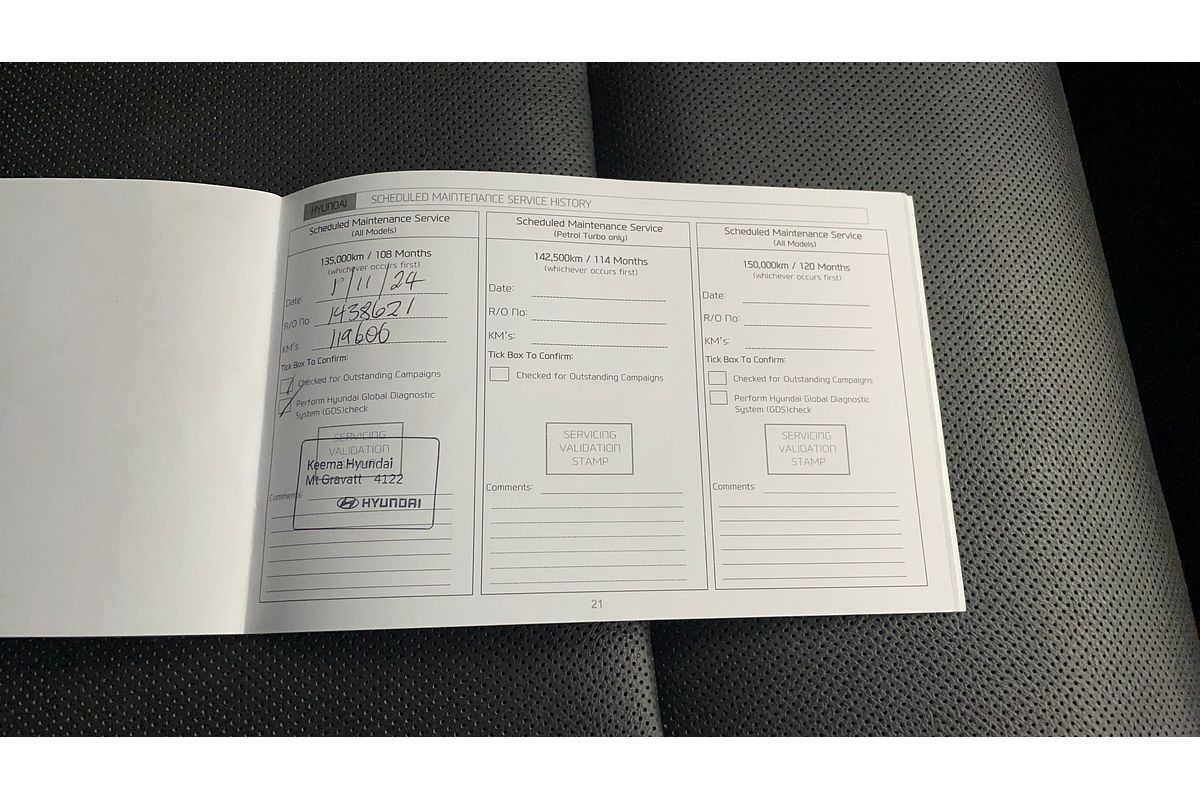 HYUNDAI SCHEDULED MAINTENANCE SERVICE HISTORY
Scheduled Maintenance Service
(All Models)
135,000km / 108 Months
(whichever occurs first)
Date /11/24
R/O No: 1438621
KM's: 119606
Tick Box To Confirm:
Checked for Outstanding Campaigns
Perform Hyundai Global Diagnostic
System (GDS)check
SERVICING
VALIDATION
Keema Hyundai
Mt Gravatt 4122
Comments:
HYUNDAI
Scheduled Maintenance Service
(Petrol Turbo only)
142,500km / 114 Months
(whichever occurs first)
Date:
R/O No:
KM's:
Tick Box To Confirm:
Checked for Outstanding Campaigns
SERVICING
VALIDATION
STAMP
Comments:
Scheduled Maintenance Service
(All Models)
150,000km / 120 Months
(whichever occurs first)
Date:
R/O No:
KM's:
Tick Box To Confirm:
Checked for Outstanding Campaigns
Perform Hyundai Global Diagnostic
System (GDS)check
SERVICING
VALIDATION
STAMP
Comments:
21